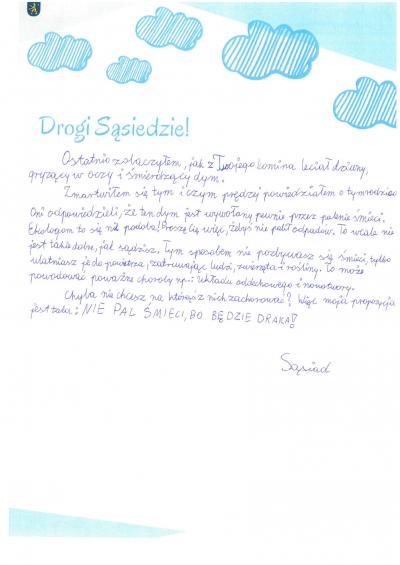 Drogi Sąsiedzie!
Ostatnio zobaczyłem, jak z Twojego komina leciał dziwny,
gryzący w oczy i śmierdzący dym.
Zmartwiłem się tym i czym prędzej powiedziałem o tym rodzicom
Oni odpowiedzieli, że ten dym jest wywołany pewnie przez palenie śmieci.
Ekologom to się nie podoba! Proszę Cię więc, żebyś nie palił odpadów. To wcale nie
jest takie dobre, jak sądzisz. Tym sposobem nie pozbywasz się śmieci, tylko
ulatniasz je do powietrza, zatruwając ludzi, zwierzęta i rośliny. To może
powodować poważne choroby np.: układu oddechowego i nowotwory.
Chyba nie chcesz na którąś z nich zachorować? Więc moja propozycja
jest taka: NIE PAL ŚMIECI, BO BĘDZIE DRAKA!
Sąsiad